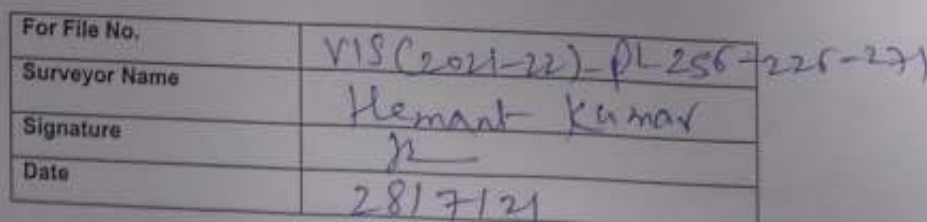 For File No. VIS(2021-22)-PL256-226-271
Surveyor Name Hemant Kumar
Signature
Date 28/7/21